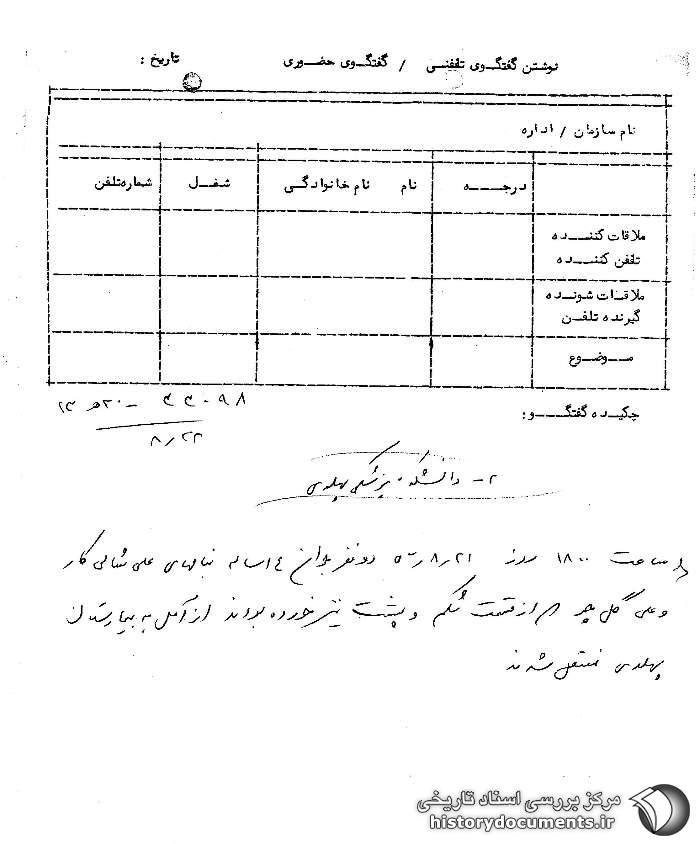 نوشتن گفتگوی تلفنی / گفتگوی حضوری تاریخ :
نام سازمان / اداره
درجه نام نام خانوادگی شغل شماره تلفن
ملاقات کننده
تلفن کننده
ملاقات شونده
گیرنده تلفن
موضوع
چکیده گفتگو :
۸/۲۳
۲- دانشکده پزشکی پهلوی
ساعت ۱۸۰۰ روز ۸/۲۱ دو نفر جوان ساله بنامهای علی
و علی گل از قسمت شکم و پشت تیر خورده بودند از آمل به بیمارستان
پهلوی منتقل شدند
مرکز بررسی اسناد تاریخی
historydocuments.ir